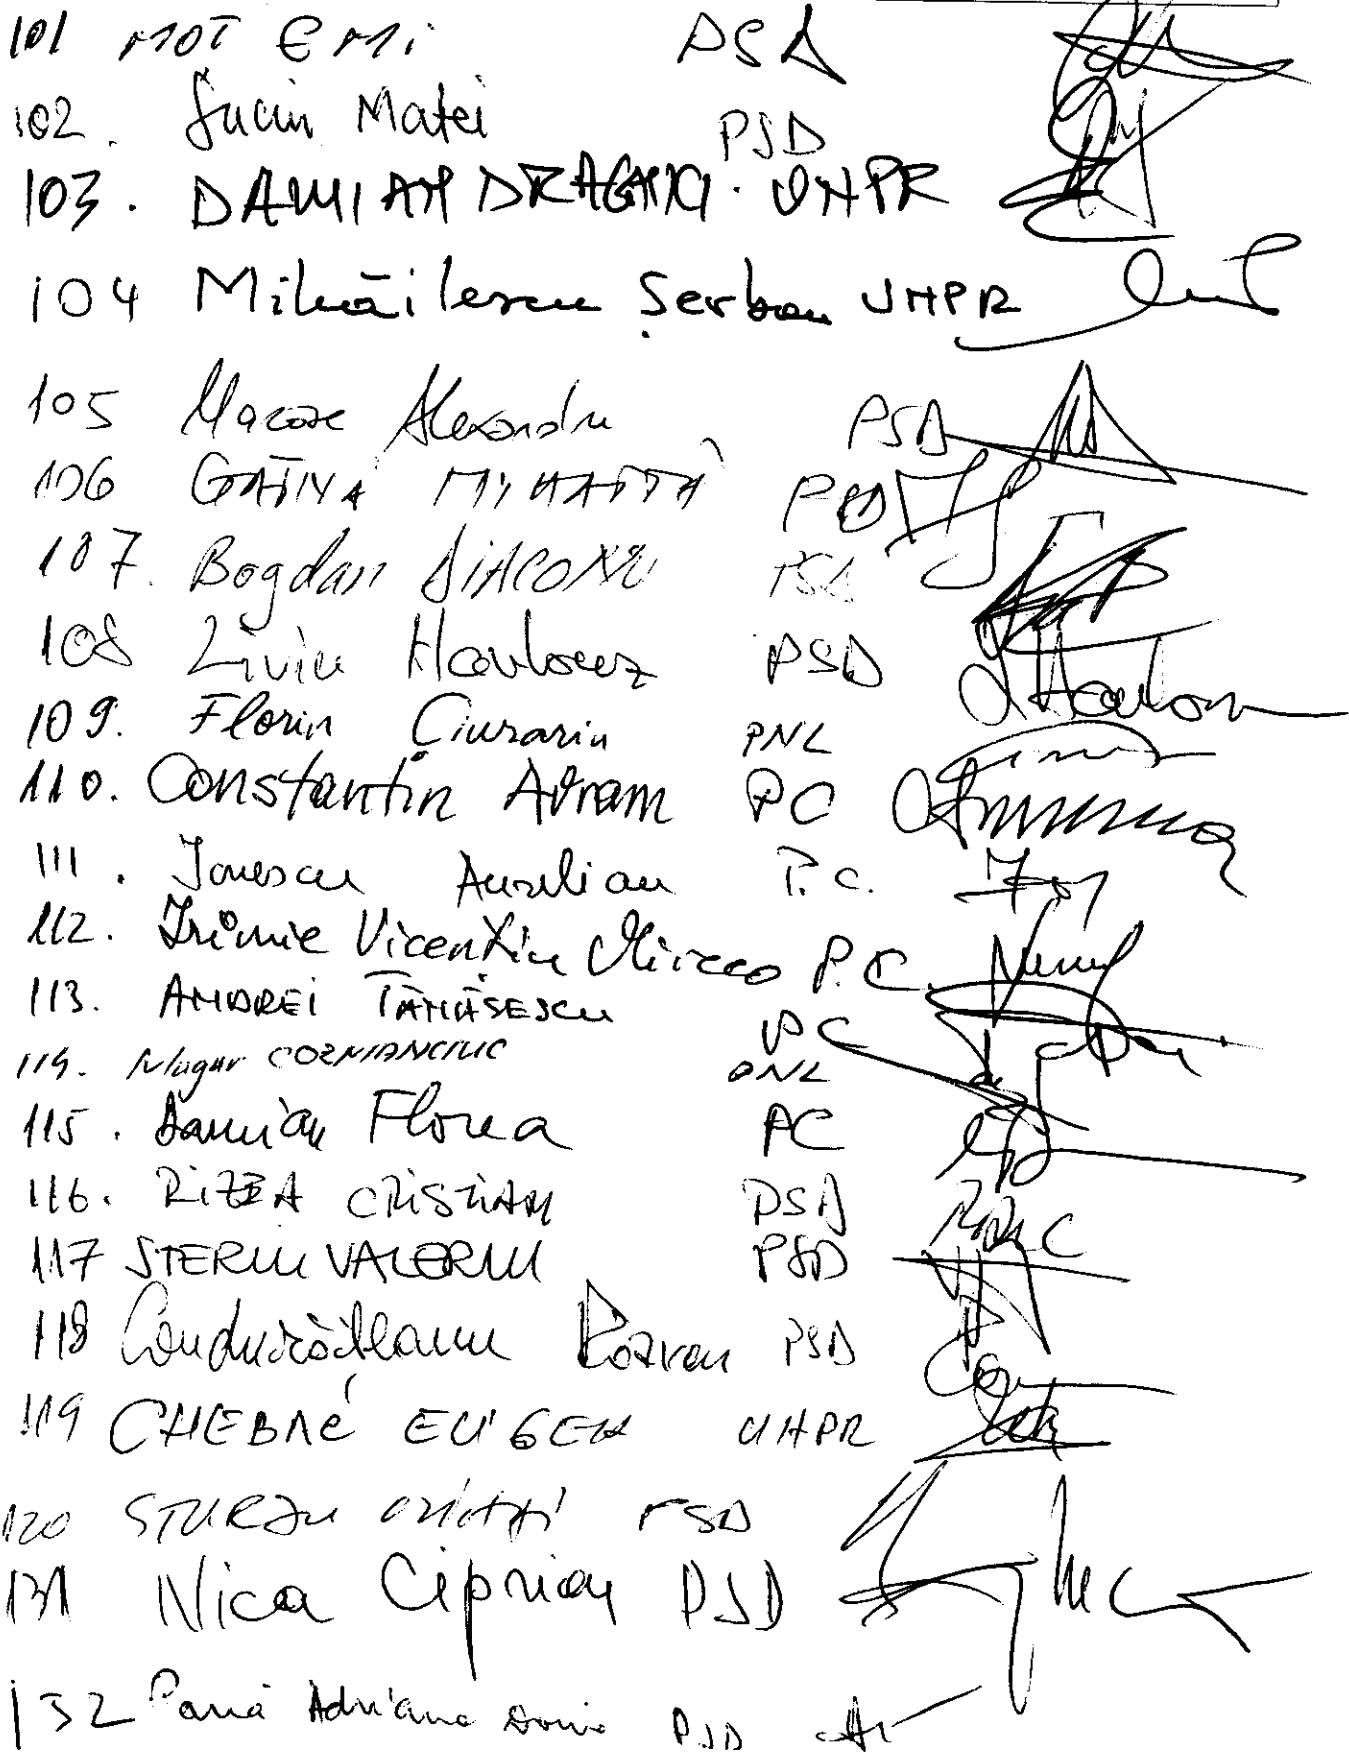 101 MOT EMi PSD
102. Suciu Matei PSD
103. DAMIAN DRAGHICI. UNPR
104 Mihăilescu Șerban UNPR
105 Mazăre Alexandru PSD
106 GĂINĂ MIHĂIȚĂ PSD
107. Bogdan DIACONU PSD
108 Liviu Harbuz PSD
109. Florin Ciurariu PNL
110. Constantin Avram PC
111. Ionescu Aurelian P.C.
112. Irimie Vicențiu Mircea P.C.
113. ANDREI TĂNĂSESCU PC
114. Mugur COZMANCIUC PNL
115. Damian Florea PC
116. RIZEA CRISTIAN PSD
117 STERIU VALERIU PSD
118 Condurățeanu Răzvan PSD
119 CHEBAC EUGEN UNPR
120 STURZU PSD
131 Nica Ciprian PSD
132 Pană Adriana Doina PSD